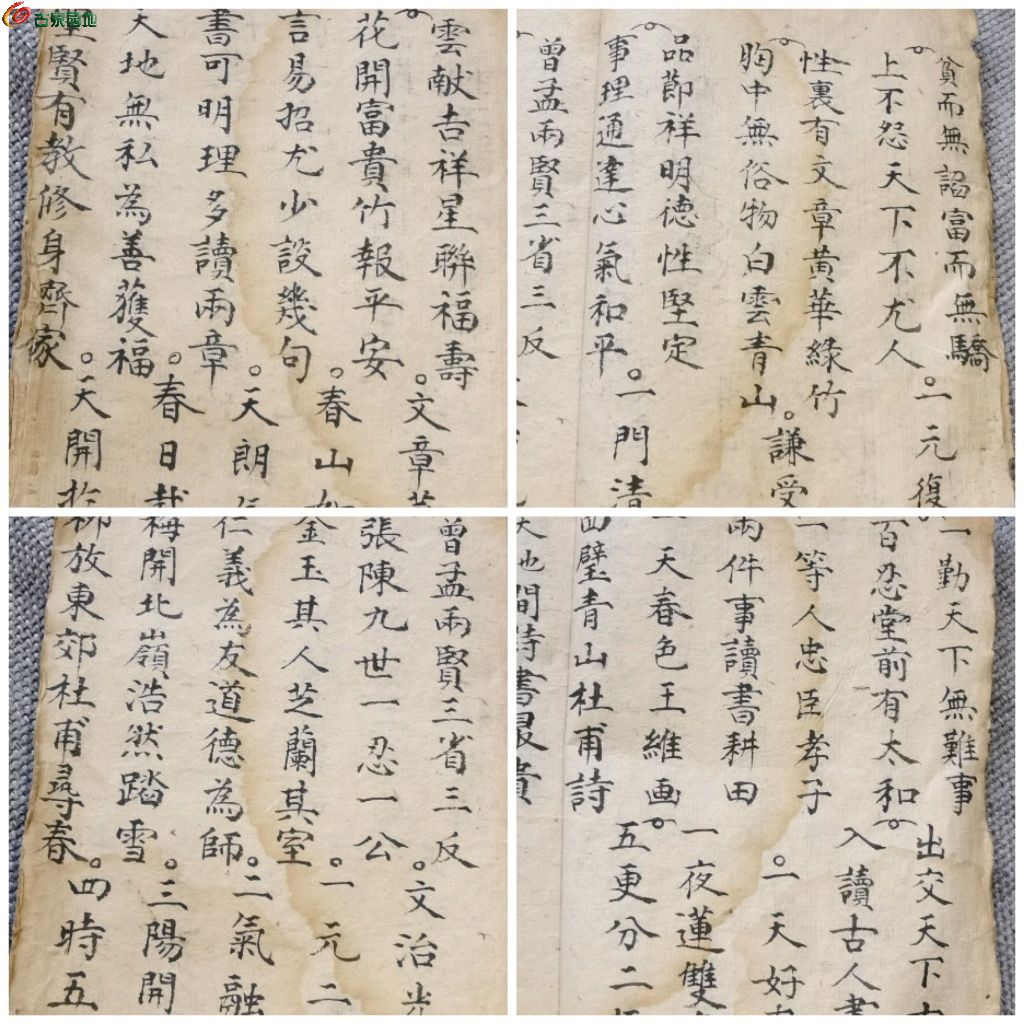 古泉园地
雲献吉祥星聯福壽
。文章
花開富貴竹報平安
。春山
言易招尤少設幾句
。天朗
書可明理多讀兩章
。春日
天地無私為善獲福
。天開
賢有教修身齊家
貧而無諂富而無驕
。一元復
上不怨天下不尤人
性裏有文章黃華綠竹
。謙受
胸中無俗物白雲青山
品節祥明德性堅定
。一門清
事理通達心氣和平
曾孟兩賢三省三反
曾孟兩賢三省三反
。文治光
張陳九世一忍一公
。一元二
金玉其人芝蘭其室
。二氣融
仁義為友道德為師
。三陽開
梅開北嶺浩然踏雪
。四時五
柳放東郊杜甫尋春
一勤天下無難事
出交天下
百忍堂前有太和
入讀古人書
一等人忠臣孝子
。一天好
兩件事讀書耕田
一夜蓮雙
一天春色王維画
五更分二
四壁青山杜甫詩
天地間詩書最貴